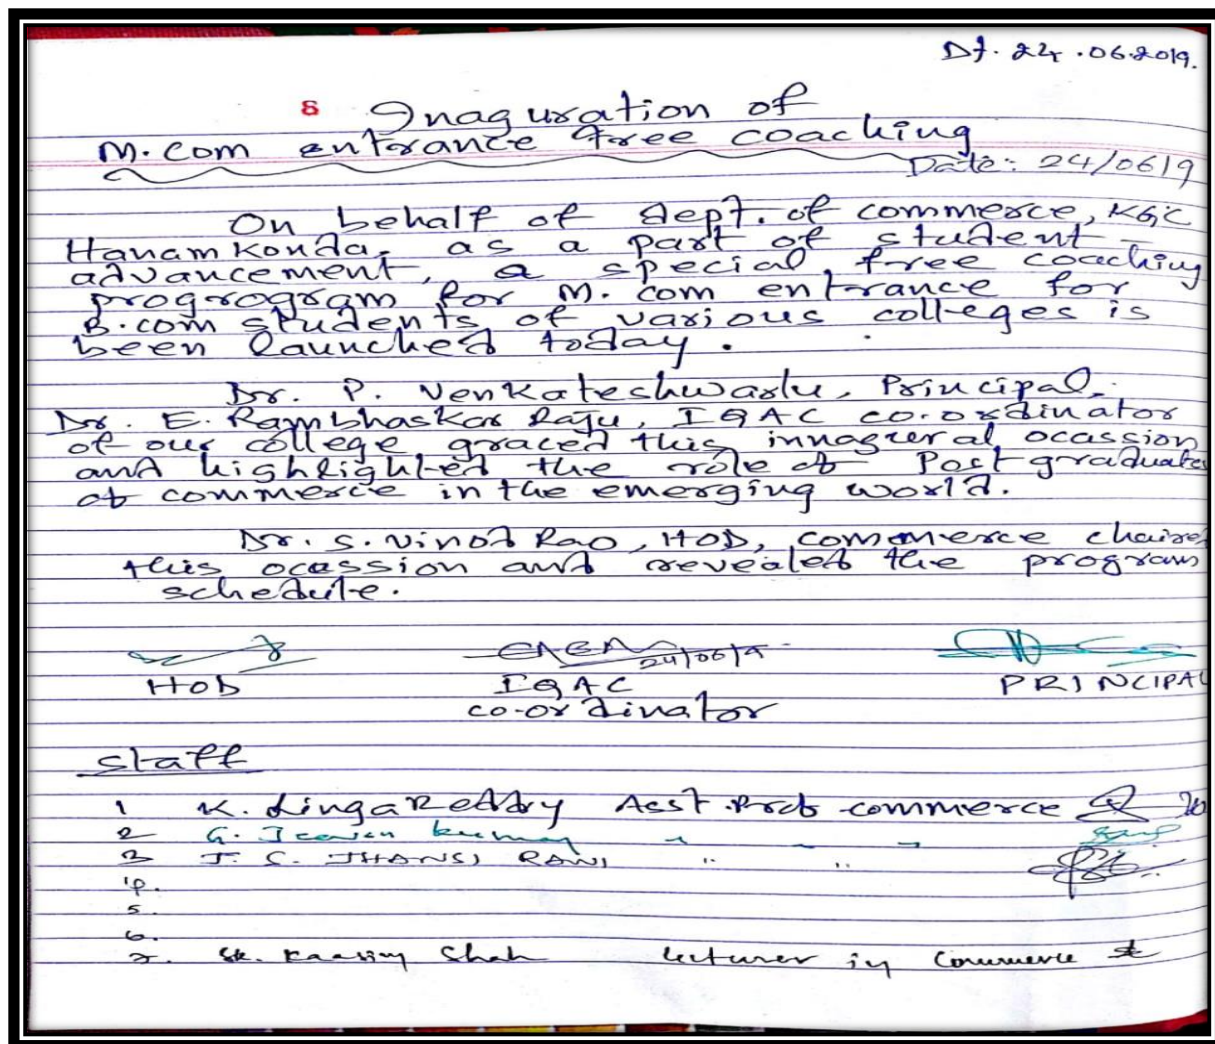 Dt. 24.06.2019.
8 Inaguration of
M.Com entrance free coaching
Date: 24/06/9
On behalf of dept. of commerce, KGC
Hanamkonda, as a part of student
advancement, a special free coaching
progrogram for M.com entrance for
B.com students of various colleges is
been launched today.
Dr. P. Venkateshwarlu, Principal,
Dr. E. Rambhaskar Raju, IQAC co-ordinator
of our college graced this innagreral ocassion
and highlighted the role of Post graduates
of commerce in the emerging world.
Dr. S. Vinod Rao, HOD, commerce chaired
this ocassion and revealed the program
schedule.
24/06/9
HOD IQAC PRINCIPAL
co-ordinator
Staff
1 K. LingaReddy Asst. Prof commerce
2 G. Jeevan kumar " " "
3 J. S. JHANSI RANI " "
4.
5.
6.
7. Sk. Kaasim Shah lecturer in Commerce